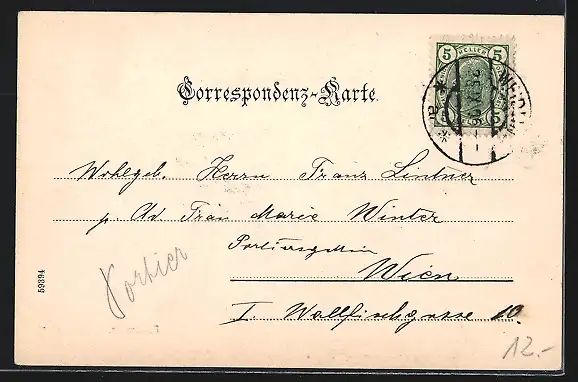 5 HELLER 5
Correspondenz-Karte.
Wohlgeb. Herrn Franz Lintner
p. Ad. Frau Marie Winter
Portiersgattin
Wien
I. Wallfischgasse 10.
59394
12.-